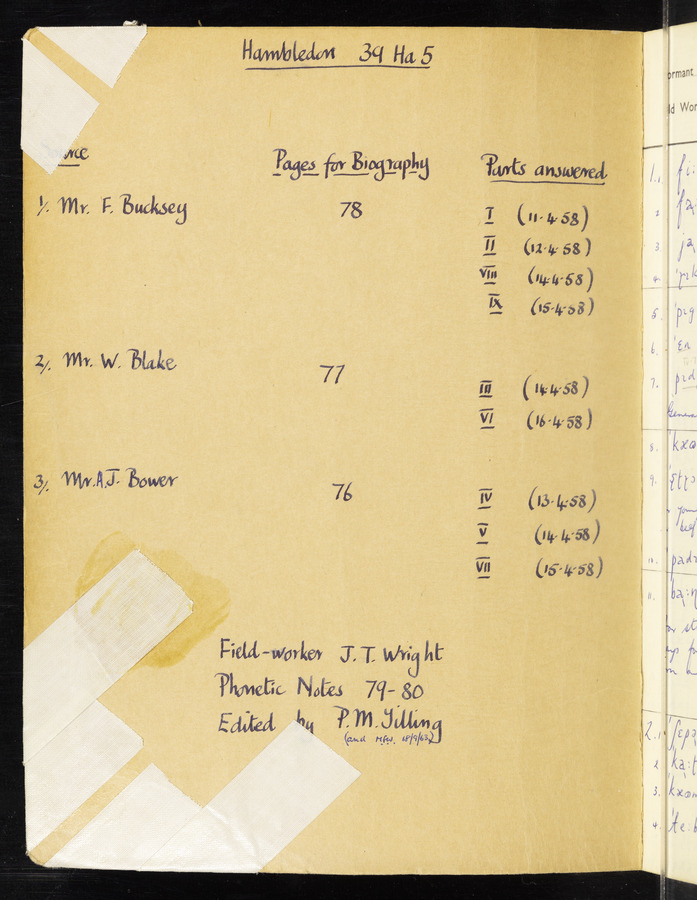 Hambledon 39 Ha 5
Pages for Biography
Parts answered
1/. Mr. F. Bucksey 78 I (11.4.58)
II (12.4.58)
VIII (14.4.58)
IX (15.4.58)
2/. Mr. W. Blake 77
III (14.4.58)
VI (16.4.58)
3/. Mr. A.J. Bower 76 IV (13.4.58)
V (14.4.58)
VII (15.4.58)
Field-worker J. T. Wright
Phonetic Notes 79-80
Edited by P. M. Tilling
(and